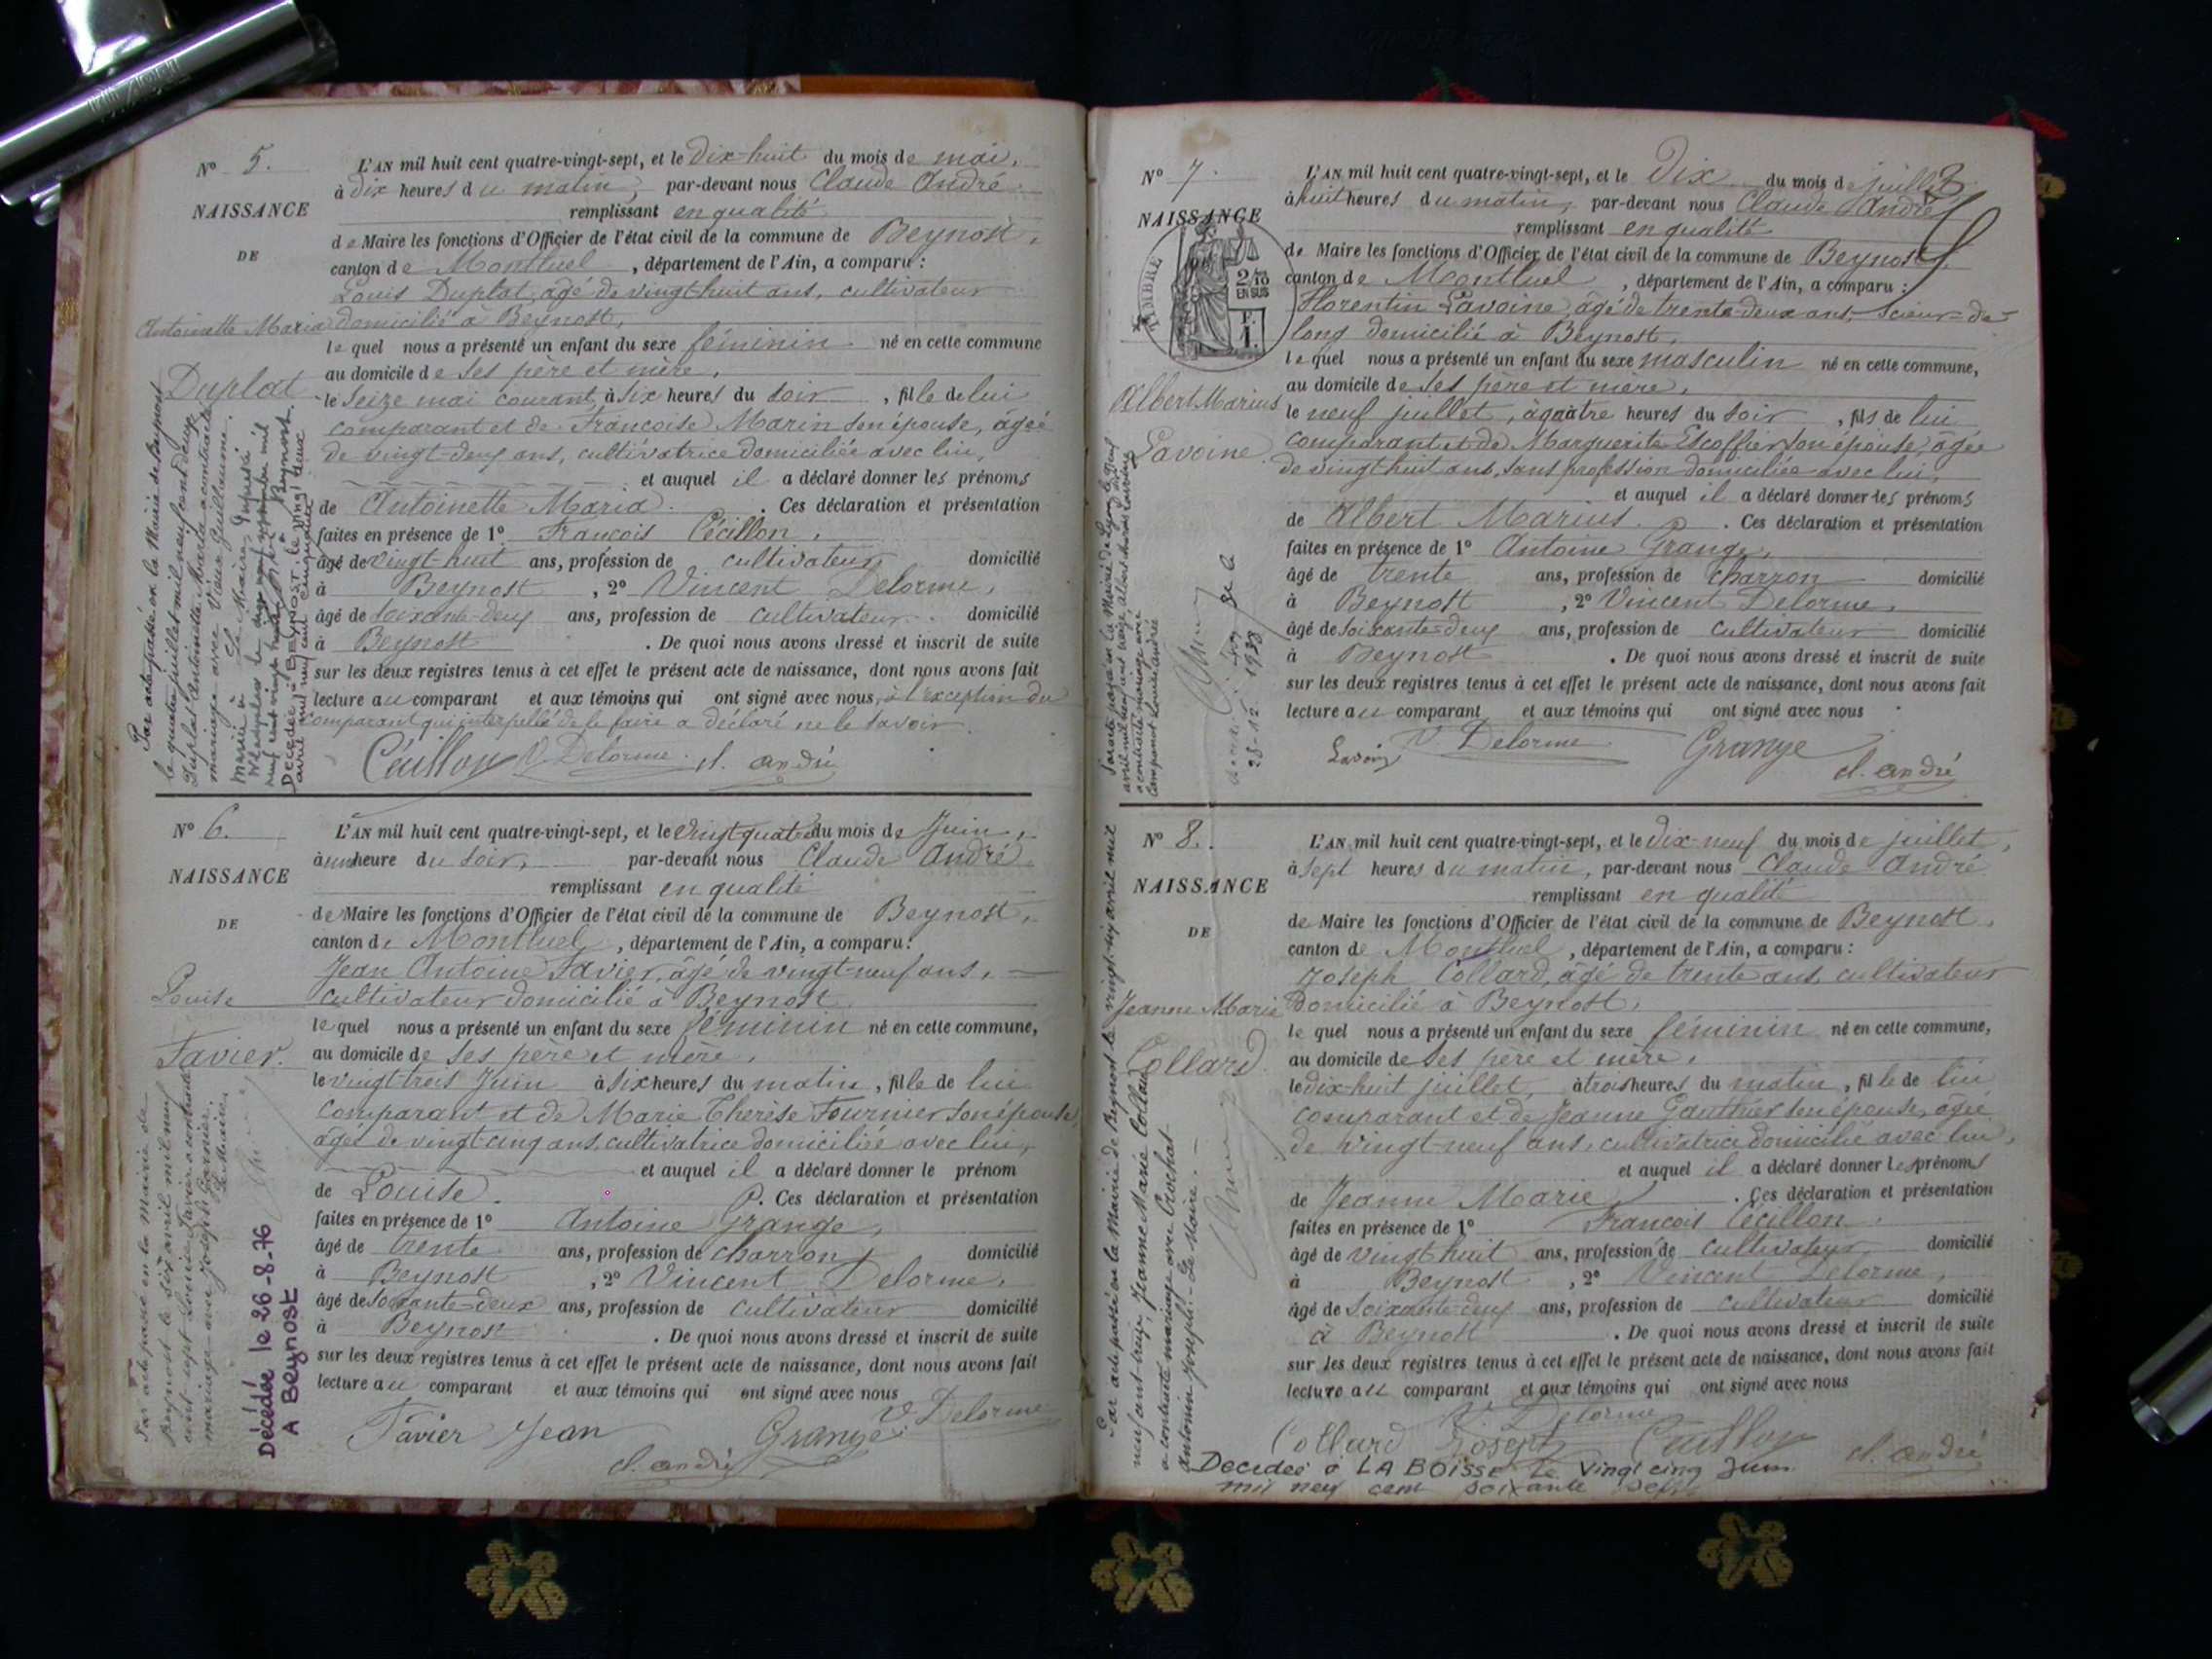 N° 5.
NAISSANCE
DE
Antoinette Maria
Duplat
L'AN mil huit cent quatre-vingt-sept, et le Dix-huit du mois de mai,
à dix heures du matin, par-devant nous Claude André
remplissant en qualité
de Maire les fonctions d'Officier de l'état civil de la commune de Beynost,
canton de Montluel, département de l'Ain, a comparu :
Louis Duplat, âgé de vingt huit ans, cultivateur
domicilié à Beynost,
lequel nous a présenté un enfant du sexe féminin né en cette commune
au domicile de ses père et mère,
le seize mai courant, à six heures du soir, fille de lui
comparant et de Françoise Marin son épouse, âgée
de vingt-deux ans, cultivatrice domiciliée avec lui,
et auquel il a déclaré donner les prénoms
de Antoinette Maria. Ces déclaration et présentation
faites en présence de 1° François Cécillon,
âgé de vingt-huit ans, profession de cultivateur domicilié
à Beynost, 2° Vincent Delorme,
âgé de soixante-deux ans, profession de cultivateur domicilié
à Beynost. De quoi nous avons dressé et inscrit de suite
sur les deux registres tenus à cet effet le présent acte de naissance, dont nous avons fait
lecture au comparant et aux témoins qui ont signé avec nous, à l'exception du
comparant qui interpellé de le faire a déclaré ne le savoir
Cécillon V. Delorme cl. andré
Par acte passé en la Mairie de Beynost
le quatre juillet mil neuf cent deux
Duplat Antoinette Maria a contracté
mariage avec Vieux Guillaume.
Le Maire
Décédée à BEYNOST, le vingt deux
avril mil neuf cent cinquante
N° 6.
NAISSANCE
DE
Louise
Favier.
L'AN mil huit cent quatre-vingt-sept, et le vingt quatre du mois de Juin,
à une heure du soir, par-devant nous Claude André
remplissant en qualité
de Maire les fonctions d'Officier de l'état civil de la commune de Beynost,
canton de Montluel, département de l'Ain, a comparu :
Jean Antoine Favier, âgé de vingt-neuf ans,
cultivateur domicilié à Beynost
lequel nous a présenté un enfant du sexe féminin né en cette commune,
au domicile de ses père et mère,
le vingt trois Juin à six heures du matin, fille de lui
comparant et de Marie Therèse Fournier son épouse,
âgée de vingt cinq ans, cultivatrice domiciliée avec lui,
et auquel il a déclaré donner le prénom
de Louise. Ces déclaration et présentation
faites en présence de 1° Antoine Grange,
âgé de trente ans, profession de charron domicilié
à Beynost, 2° Vincent Delorme,
âgé de soixante-deux ans, profession de cultivateur domicilié
à Beynost. De quoi nous avons dressé et inscrit de suite
sur les deux registres tenus à cet effet le présent acte de naissance, dont nous avons fait
lecture au comparant et aux témoins qui ont signé avec nous
V. Delorme
Favier Jean Grange
cl. andré
Par acte passé en la mairie de
Beynost le six avril mil neuf
cent sept Louise Favier a contracté
mariage avec Joseph Garnier.
Le Maire
Décédée le 26-8-76
A BEYNOST
N° 7.
NAISSANCE
TIMBRE
2/10
EN SUS
F.
1.
Albert Marius
Lavoine
L'AN mil huit cent quatre-vingt-sept, et le Dix du mois de juillet
à huit heures du matin, par-devant nous Claude André
remplissant en qualité
de Maire les fonctions d'Officier de l'état civil de la commune de Beynost
canton de Montluel, département de l'Ain, a comparu :
Florentin Lavoine, âgé de trente-deux ans, scieur-de-
long domicilié à Beynost,
lequel nous a présenté un enfant du sexe masculin né en cette commune,
au domicile de ses père et mère,
le neuf juillet, à quatre heures du soir, fils de lui
comparant et de Marguerite Escoffier son épouse, âgée
de vingt huit ans, sans profession domiciliée avec lui,
et auquel il a déclaré donner les prénoms
de Albert Marius. Ces déclaration et présentation
faites en présence de 1° Antoine Grange,
âgé de trente ans, profession de charron domicilié
à Beynost, 2° Vincent Delorme,
âgé de soixante-deux ans, profession de cultivateur domicilié
à Beynost. De quoi nous avons dressé et inscrit de suite
sur les deux registres tenus à cet effet le présent acte de naissance, dont nous avons fait
lecture au comparant et aux témoins qui ont signé avec nous
Lavoine V. Delorme Grange
cl. andré
N° 8.
NAISSANCE
DE
Jeanne Marie
Collard.
L'AN mil huit cent quatre-vingt-sept, et le Dix-neuf du mois de juillet,
à sept heures du matin, par-devant nous Claude André
remplissant en qualité
de Maire les fonctions d'Officier de l'état civil de la commune de Beynost,
canton de Montluel, département de l'Ain, a comparu :
Joseph Collard, âgé de trente ans, cultivateur
domicilié à Beynost,
lequel nous a présenté un enfant du sexe féminin né en cette commune,
au domicile de ses père et mère,
le dix-huit juillet, à trois heures du matin, fille de lui
comparant et de Jeanne Gauthier son épouse, âgée
de vingt-neuf ans, cultivatrice domicilié avec lui,
et auquel il a déclaré donner les prénoms
de Jeanne Marie. Ces déclaration et présentation
faites en présence de 1° François Cécillon
âgé de vingt huit ans, profession de cultivateur domicilié
à Beynost, 2° Vincent Delorme,
âgé de soixante-deux ans, profession de cultivateur domicilié
à Beynost. De quoi nous avons dressé et inscrit de suite
sur les deux registres tenus à cet effet le présent acte de naissance, dont nous avons fait
lecture au comparant et aux témoins qui ont signé avec nous
V. Delorme
Collard Joseph Cécillon cl. andré
Par acte passé en la Mairie de Beynost le vingt-six avril mil
neuf cent treize, Jeanne Marie Collard
a contracté mariage avec Crochat
Antonin Joseph. - Le Maire. -
Decedée à LA BOISSE le vingt cinq Juin
mil neuf cent soixante sept